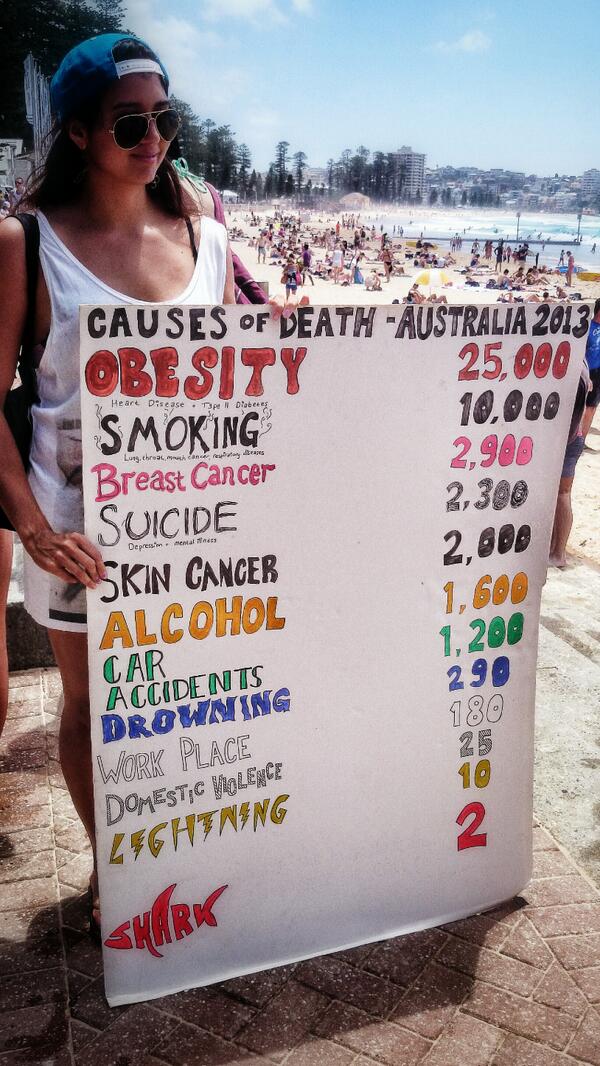 CAUSES OF DEATH - AUSTRALIA 2013
OBESITY 25,000
Heart Disease + Type II Diabetes
SMOKING 10,000
Lung, throat, mouth cancer, respiratory diseases
Breast Cancer 2,900
SUICIDE 2,300
Depression + mental illness
SKIN CANCER 2,000
ALCOHOL 1,600
CAR ACCIDENTS 1,200
DROWNING 290
WORK PLACE 180
DOMESTIC VIOLENCE 25
LIGHTNING 10
SHARK 2